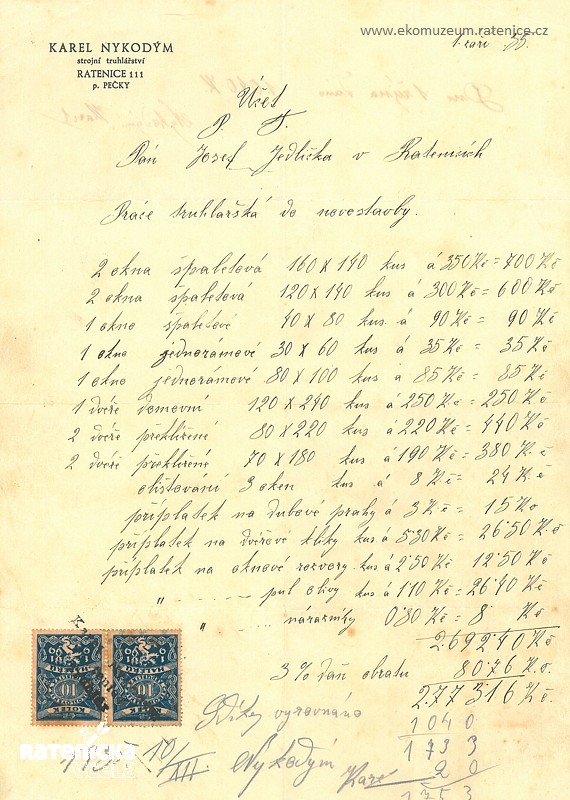 www.ekomuzeum.ratenice.cz
KAREL NYKODÝM
strojní truhlářství
RATENICE 111
p. PEČKY
1. září 35.
Účet
P. T.
Pán Josef Jedlička v Ratenicích
Práce truhlářská do novostavby.
2 okna špaletová 160 x 140 kus á 350 Kč = 700 Kč
2 okna špaletová 120 x 140 kus á 300 Kč = 600 Kč
1 okno špaletové 40 x 80 kus á 90 Kč = 90 Kč
1 okno jednorámové 30 x 60 kus á 35 Kč = 35 Kč
1 okno jednorámové 80 x 100 kus á 85 Kč = 85 Kč
1 dvéře domovní 120 x 240 kus á 250 Kč = 250 Kč
2 dvéře překližené 80 x 220 kus á 220 Kč = 440 Kč
2 dvéře překližené 70 x 180 kus á 190 Kč = 380 Kč
olištovaní 3 oken kus á 8 Kč = 24 Kč
příplatek na dubové prahy á 3 Kč = 15 Kč
příplatek na dvéřové kliky kus á 5·30 Kč = 26·50 Kč
příplatek na oknové rozvory kus á 2·50 Kč 12·50 Kč
" pul olivy kus á 1·10 Kč = 26·40 Kč
" nárazníky 0·80 Kč = 8 Kč
2692·40 Kč
3 % daň obratu 80·76 Kč.
2773·16 Kč.
Díky vyrovnáno
1040
1733
20
1753
10/XII.
Nykodým Karel
RATENICKA